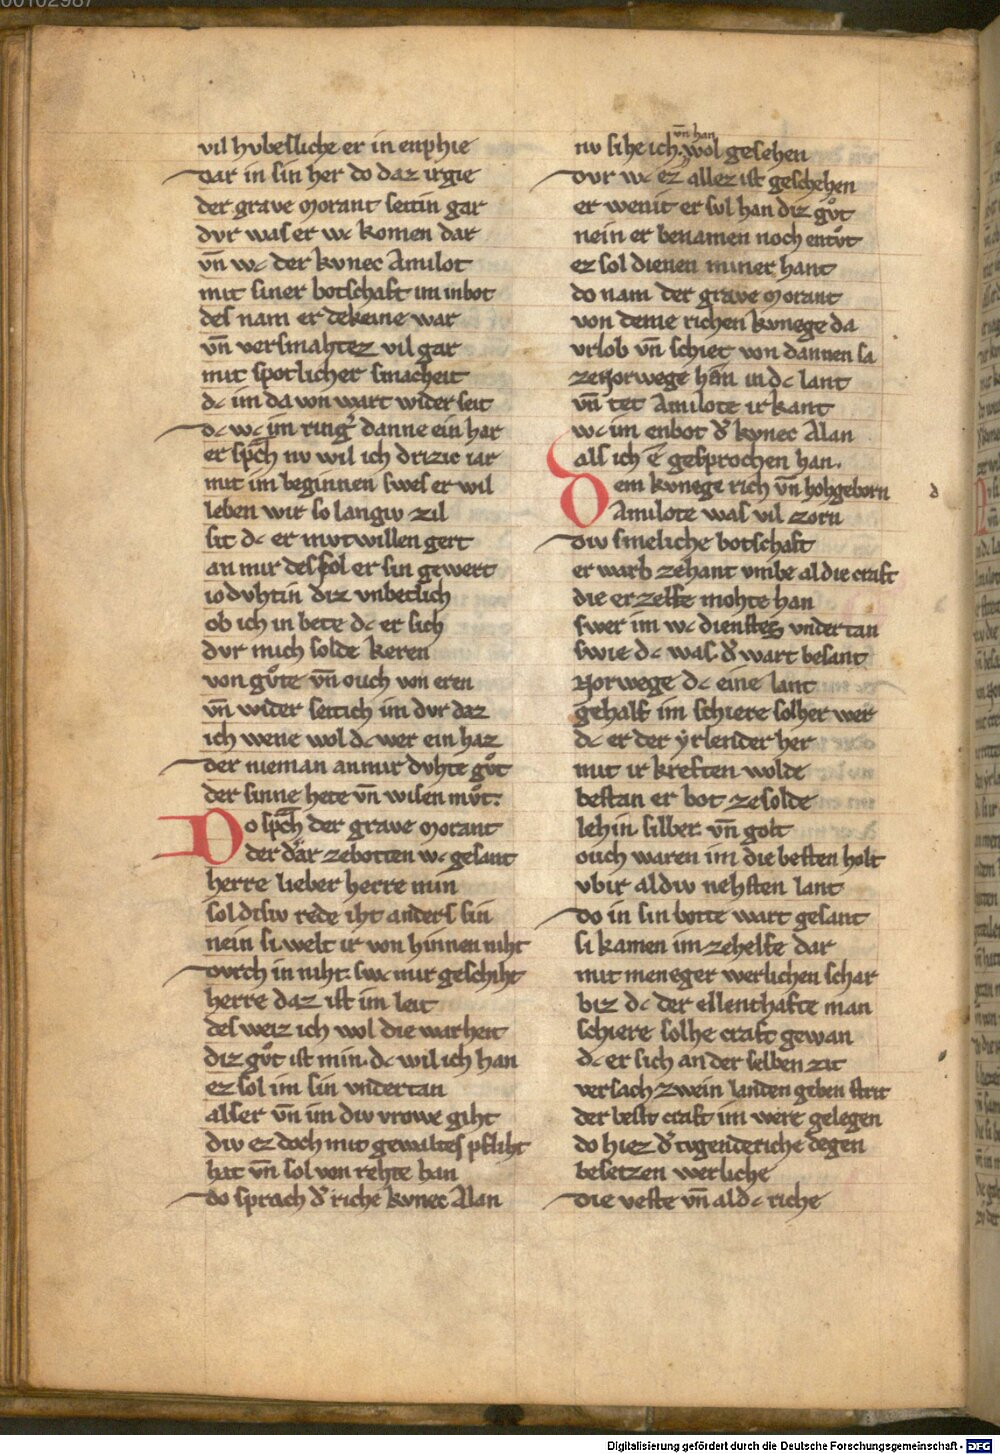 00102987
vil hvbesliche er in enphie
dar in sin her do daz irgie
der grave morant seitin gar
dvr was er wc komen dar
vn̄ wc der kvnec Amilot
mit siner botschaft im inbot
des nam er dekeine war
vn̄ versmahtez vil gar
mit spotlicher smacheit
dc im da von wart wider seit
dc wc im ring͛ danne ein har
er sp̄ch nv wil ich drizic iar
mit im beginnen swes er wil
leben wir so langiv zil
sit dc er mvtwillen gert
an mir des sol er sin gewert
io dvhtin diz vnbetlich
ob ich in bete dc er sich
dvr mich solde keren
von gvͦte vn̄ ouch von eren
vn̄ wider seitich im dvr daz
ich wene wol dc wer ein haz
der nieman an mir dvhte gvͦt
der sinne hete vn̄ wisen mvͦt.
Do sp̄ch der grave morant
der d͛ar zebotten wc gesant
herre lieber herre min
sol disiv rede iht anders sin
nein si welt ir von hinnen niht
dvrch in niht swc mir geschiht
herre daz ist im leit
des weiz ich wol die warheit
diz gvͦt ist min. dc wil ich han
ez sol im sin vndertan
alser vn̄ im div vrowe giht
div ez doch mit gewaltes pfliht
hat vn̄ sol von rehte han
do sprach d͛ riche kvnec Alan
vn̄ han
nv sihe ich wol gesehen
dvr wc ez allez ist geschehen
er wenit er sol han diz gvͦt
nein er benamen noch entvͦt
ez sol dienen miner hant
do nam der grave morant
von deme richen kvnege da
vrlob vn̄ schiet von dannen sa
zenorwege hin in dc lant
vn̄ tet Amilote irkant
wc im enbot d͛ kvnec Alan
als ich e gesprochen han.
d
Dem kvnege rich vn̄ hohgeborn
Amilote was vil zorn
div smeliche botschaft
er warb zehant vmbe al die craft
die er zelfe mohte han
swer im wc dienstes vndertan
swie dc was. d͛ wart besant
Norwege dc eine lant
gehalf im schiere solher wer
dc er der yrlender her
mit ir kreften wolde
bestan er bot zesolde
lehin silber vn̄ golt
ouch waren im die besten holt
vbir al div nehsten lant
do in sin botte wart gesant
si kamen im zehelfe dar
mit meneger werlichen schar
biz dc der ellenthafte man
schiere solhe craft gewan
dc er sich an der selben zit
versach zwein landen geben strit
der beste craft im were gelegen
do hiez d͛ tvgenderiche degen
besetzen werliche
die veste vn̄ al dc riche
Digitalisierung gefördert durch die Deutsche Forschungsgemeinschaft - DFG